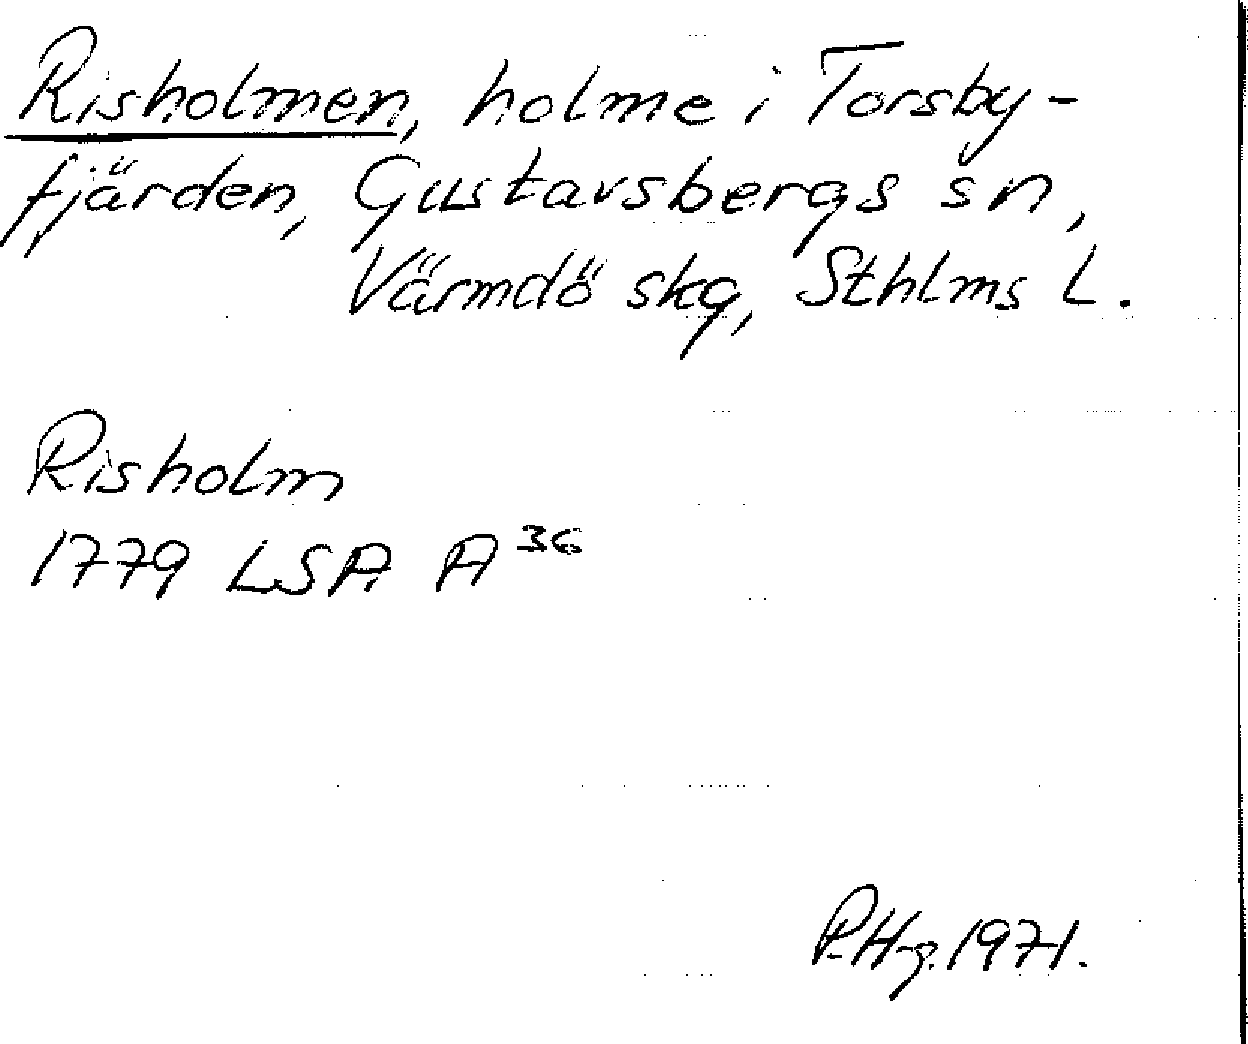 Risholmen, holme i Torsby-
fjärden, Gustavsbergs sn,
Värmdö skg, Sthlms L.
Risholm
1779 LSA A36
P.Hg. 1971.